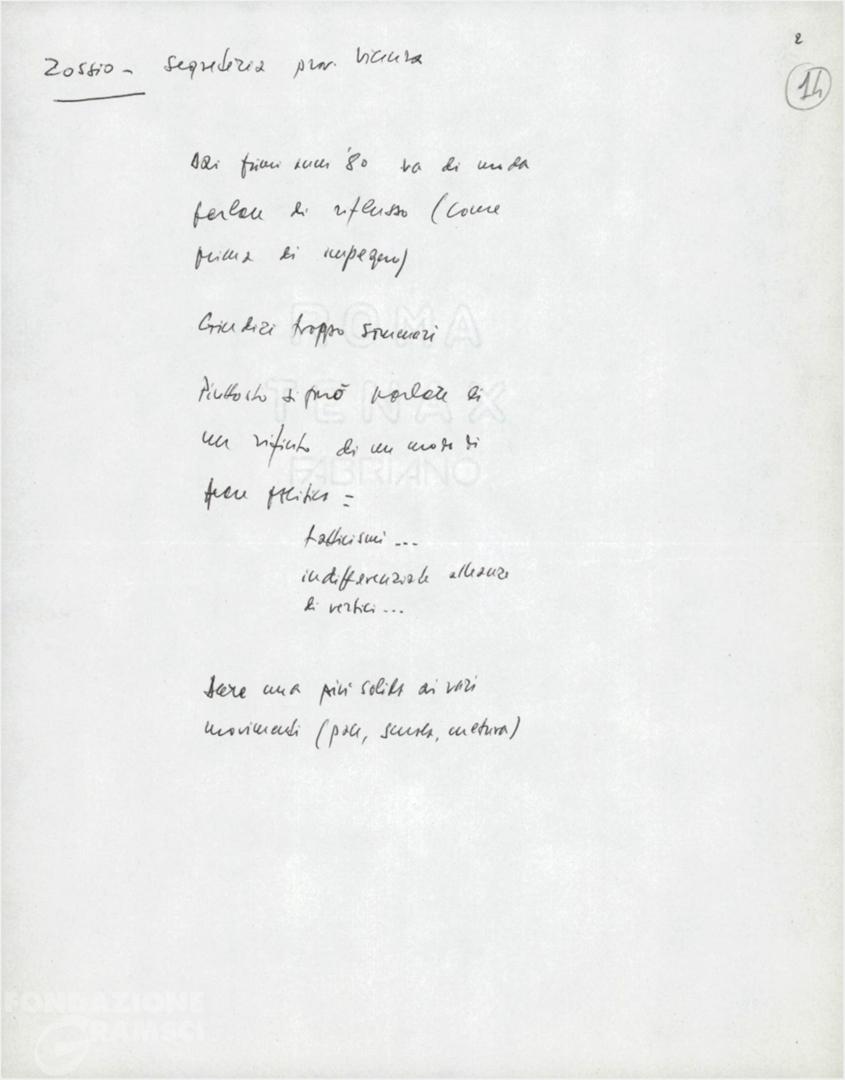 2
14
Zossio - segreteria prov. Vicenza
Dai primi anni '80 va di moda
parlare di riflusso (come
prima di impegno)
Giudizi troppo sommari
Piuttosto si può parlare di
un rifiuto di un modo di
fare politica =
tatticismi ...
indifferenziate alleanze
di vertici ...
Dare una più solida ai vari
movimenti (pace, scuola, natura)
ROMA
TENAX
FABRIANO
FONDAZIONE
GRAMSCI